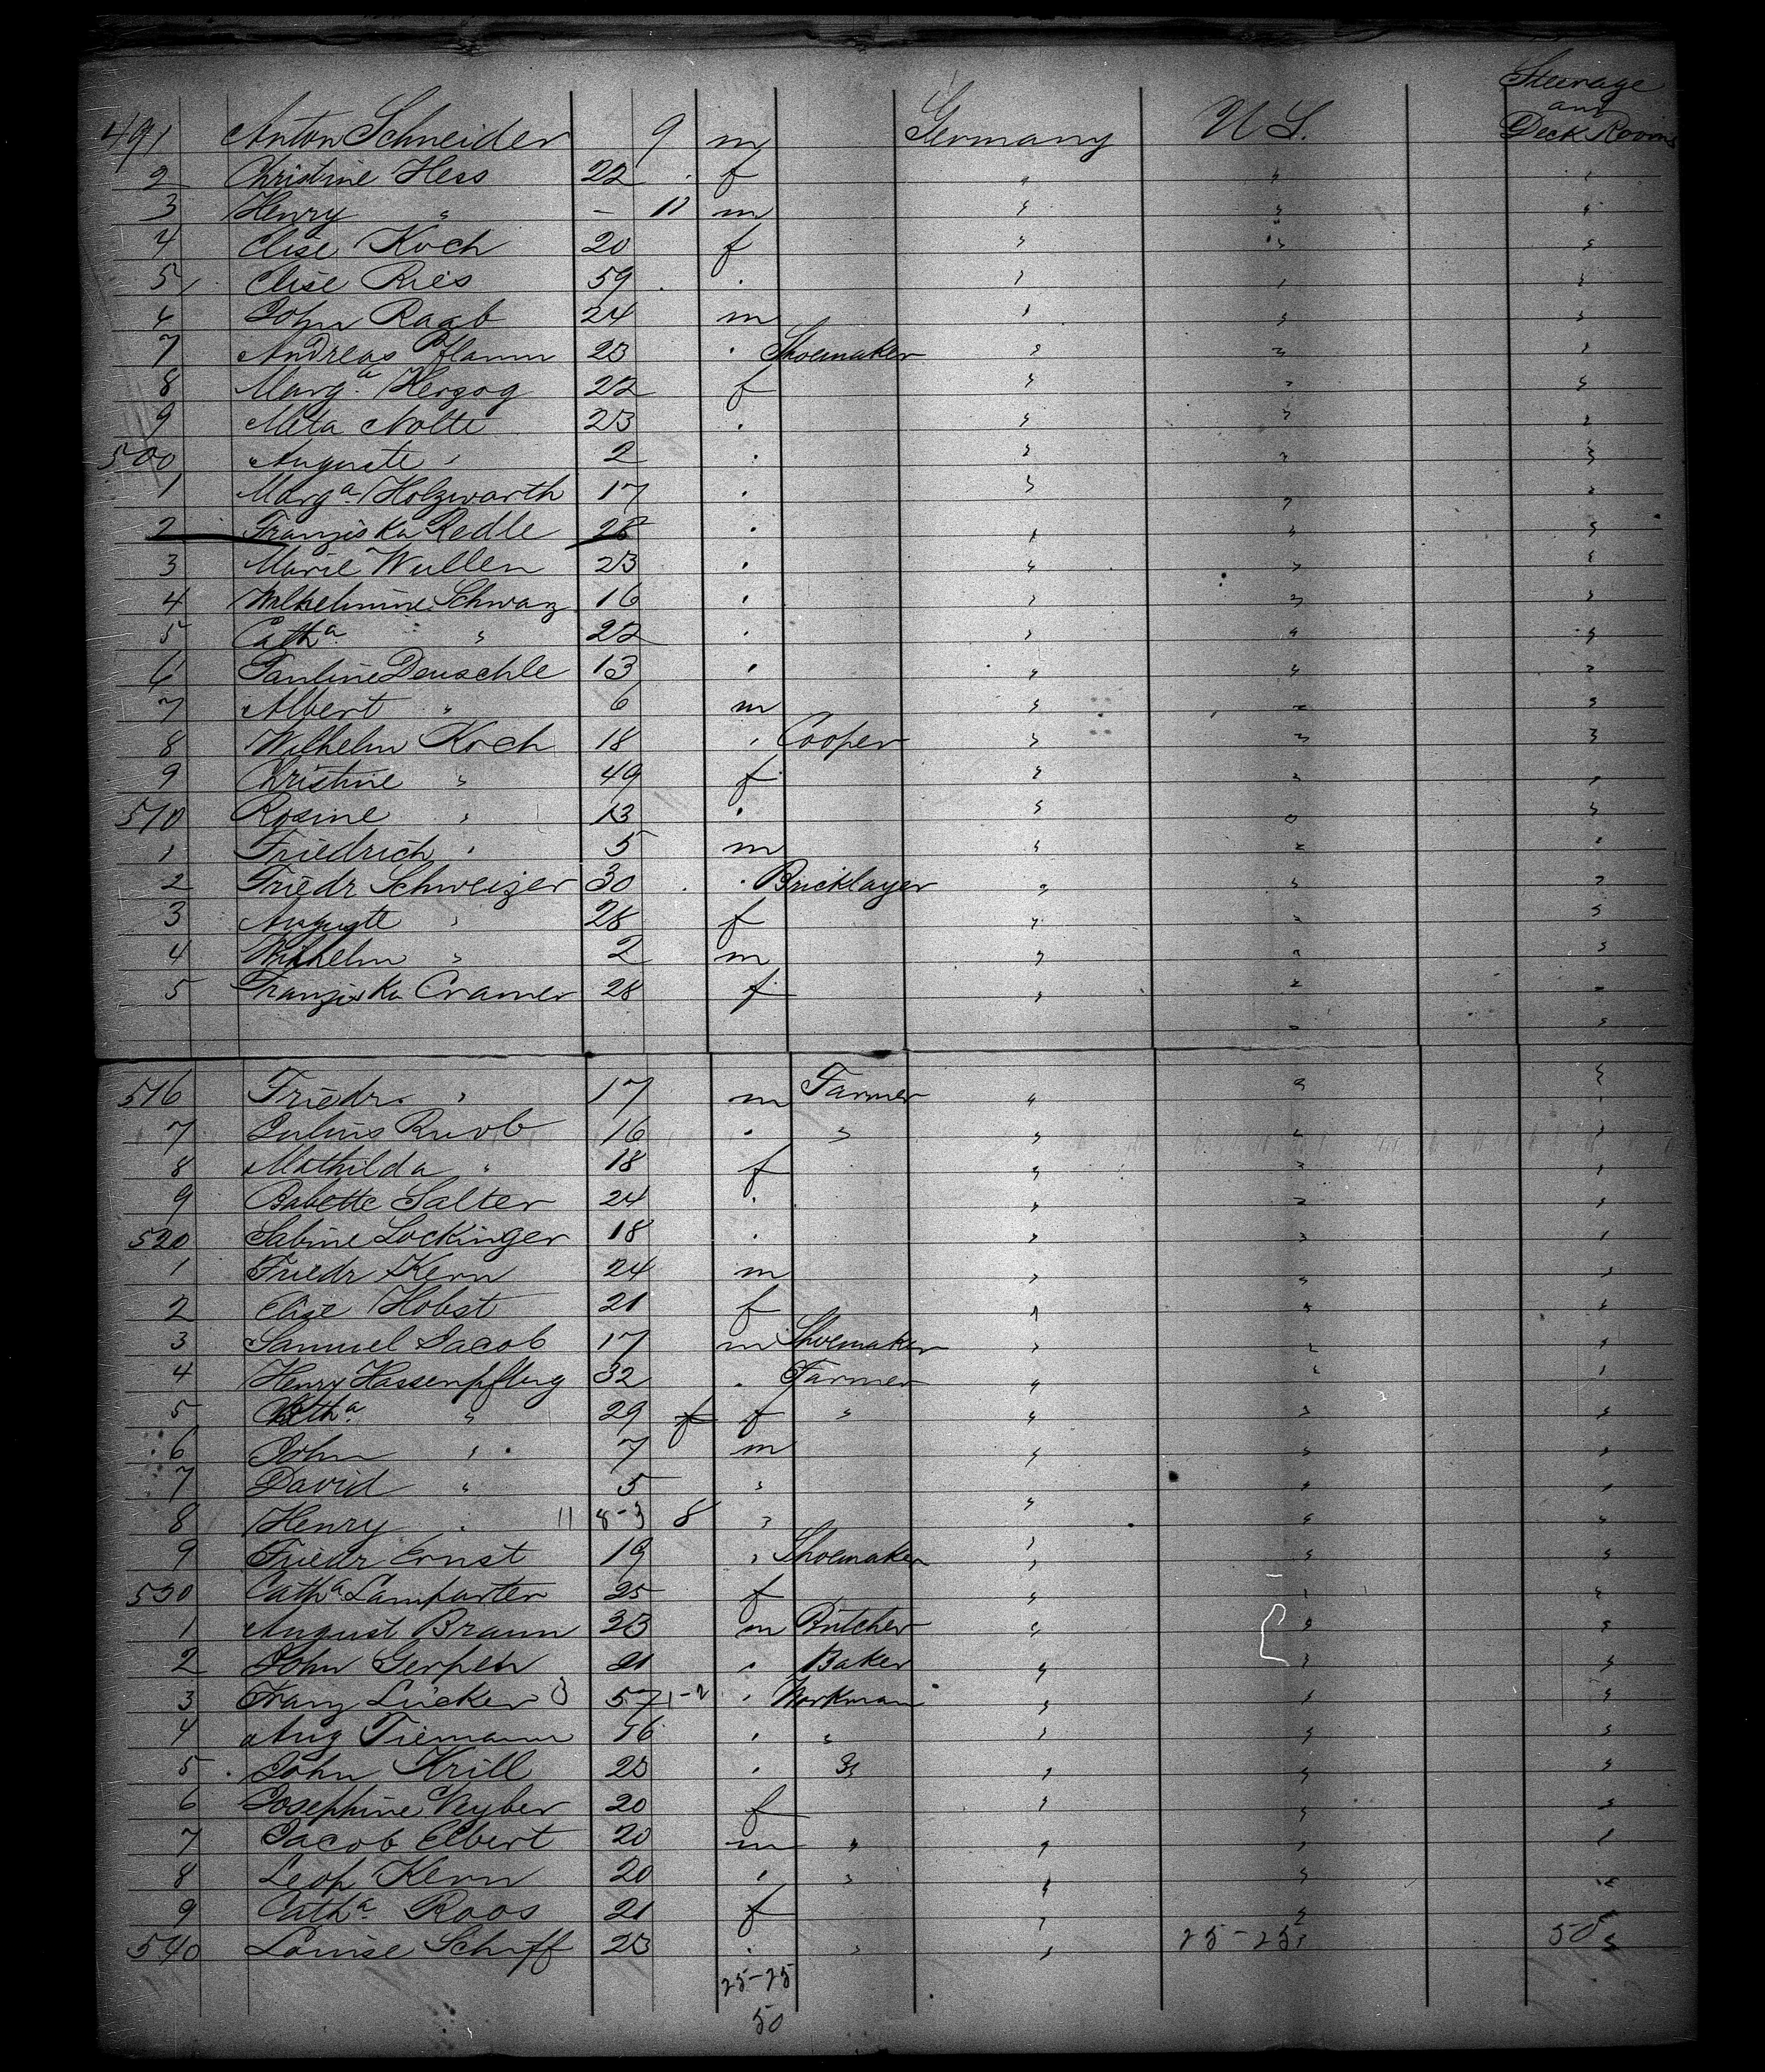 Steerage
and
Deck Rooms
491 Anton Schneider 9 m Germany U S.
2 Christine Hess 22 f " " "
3 Henry " - 11 m " " "
4 Elise Koch 20 f " " "
5 Elise Ries 59 " " " "
6 John Raab 24 m " " "
7 Andreas Pflamm 23 " Shoemaker " " "
8 Marga. Herzog 22 f " " "
9 Meta Nolte 23 " " " "
500 Auguste " 2 " " " "
1 Marga. Holzwarth 17 " " " "
2 Franziska Redle 28 " " " "
3 Marie Wullen 23 " " " "
4 Wilhelmine Schwarz 16 " " " "
5 Catha " 22 " " " "
6 Pauline Deuschle 13 " " " "
7 Albert " 6 m " " "
8 Wilhelm Koch 18 " Cooper " " "
9 Christine " 49 f " " "
510 Rosine " 13 " " " "
1 Friedrich " 5 m " " "
2 Friedr Schweizer 30 " Bricklayer " " "
3 Auguste " 28 f " " "
4 Wilhelm " 2 m " " "
5 Franziska Cramer 28 f " " "
" "
516 Friedr. " 17 m Farmer " " "
7 Julius Ruob 16 " " " " "
8 Mathilda " 18 f " " "
9 Babette Salter 24 " " " "
520 Sabine Lockinger 18 " " " "
1 Friedr Kern 24 m " " "
2 Elise Hobst 21 f " " "
3 Samuel Jacob 17 m Shoemaker " " "
4 Henry Hassenpflug 32 " Farmer " " "
5 Catha. " 29 f f " " " "
6 John " 7 m " " "
7 David " 5 " " " "
8 Henry " 11 8-3 8 " " " "
9 Friedr Ernst 19 " Shoemaker " " "
530 Catha. Lamparter 25 f " " "
1 August Braun 23 m Butcher " " "
2 John Gerpen 21 " Baker " " "
3 Franz Lücker 3 57 1-2 " Workman " " "
4 Aug Tiemann 16 " " " " "
5 John Krill 23 " " " " "
6 Josephine Weyber 20 f " " "
7 Jacob Elbert 20 m " " " "
8 Leop Kern 20 " " " " "
9 Catha. Roos 21 f " " "
540 Louise Schiff 23 " " " 25-25 " 50 "
25-25
50